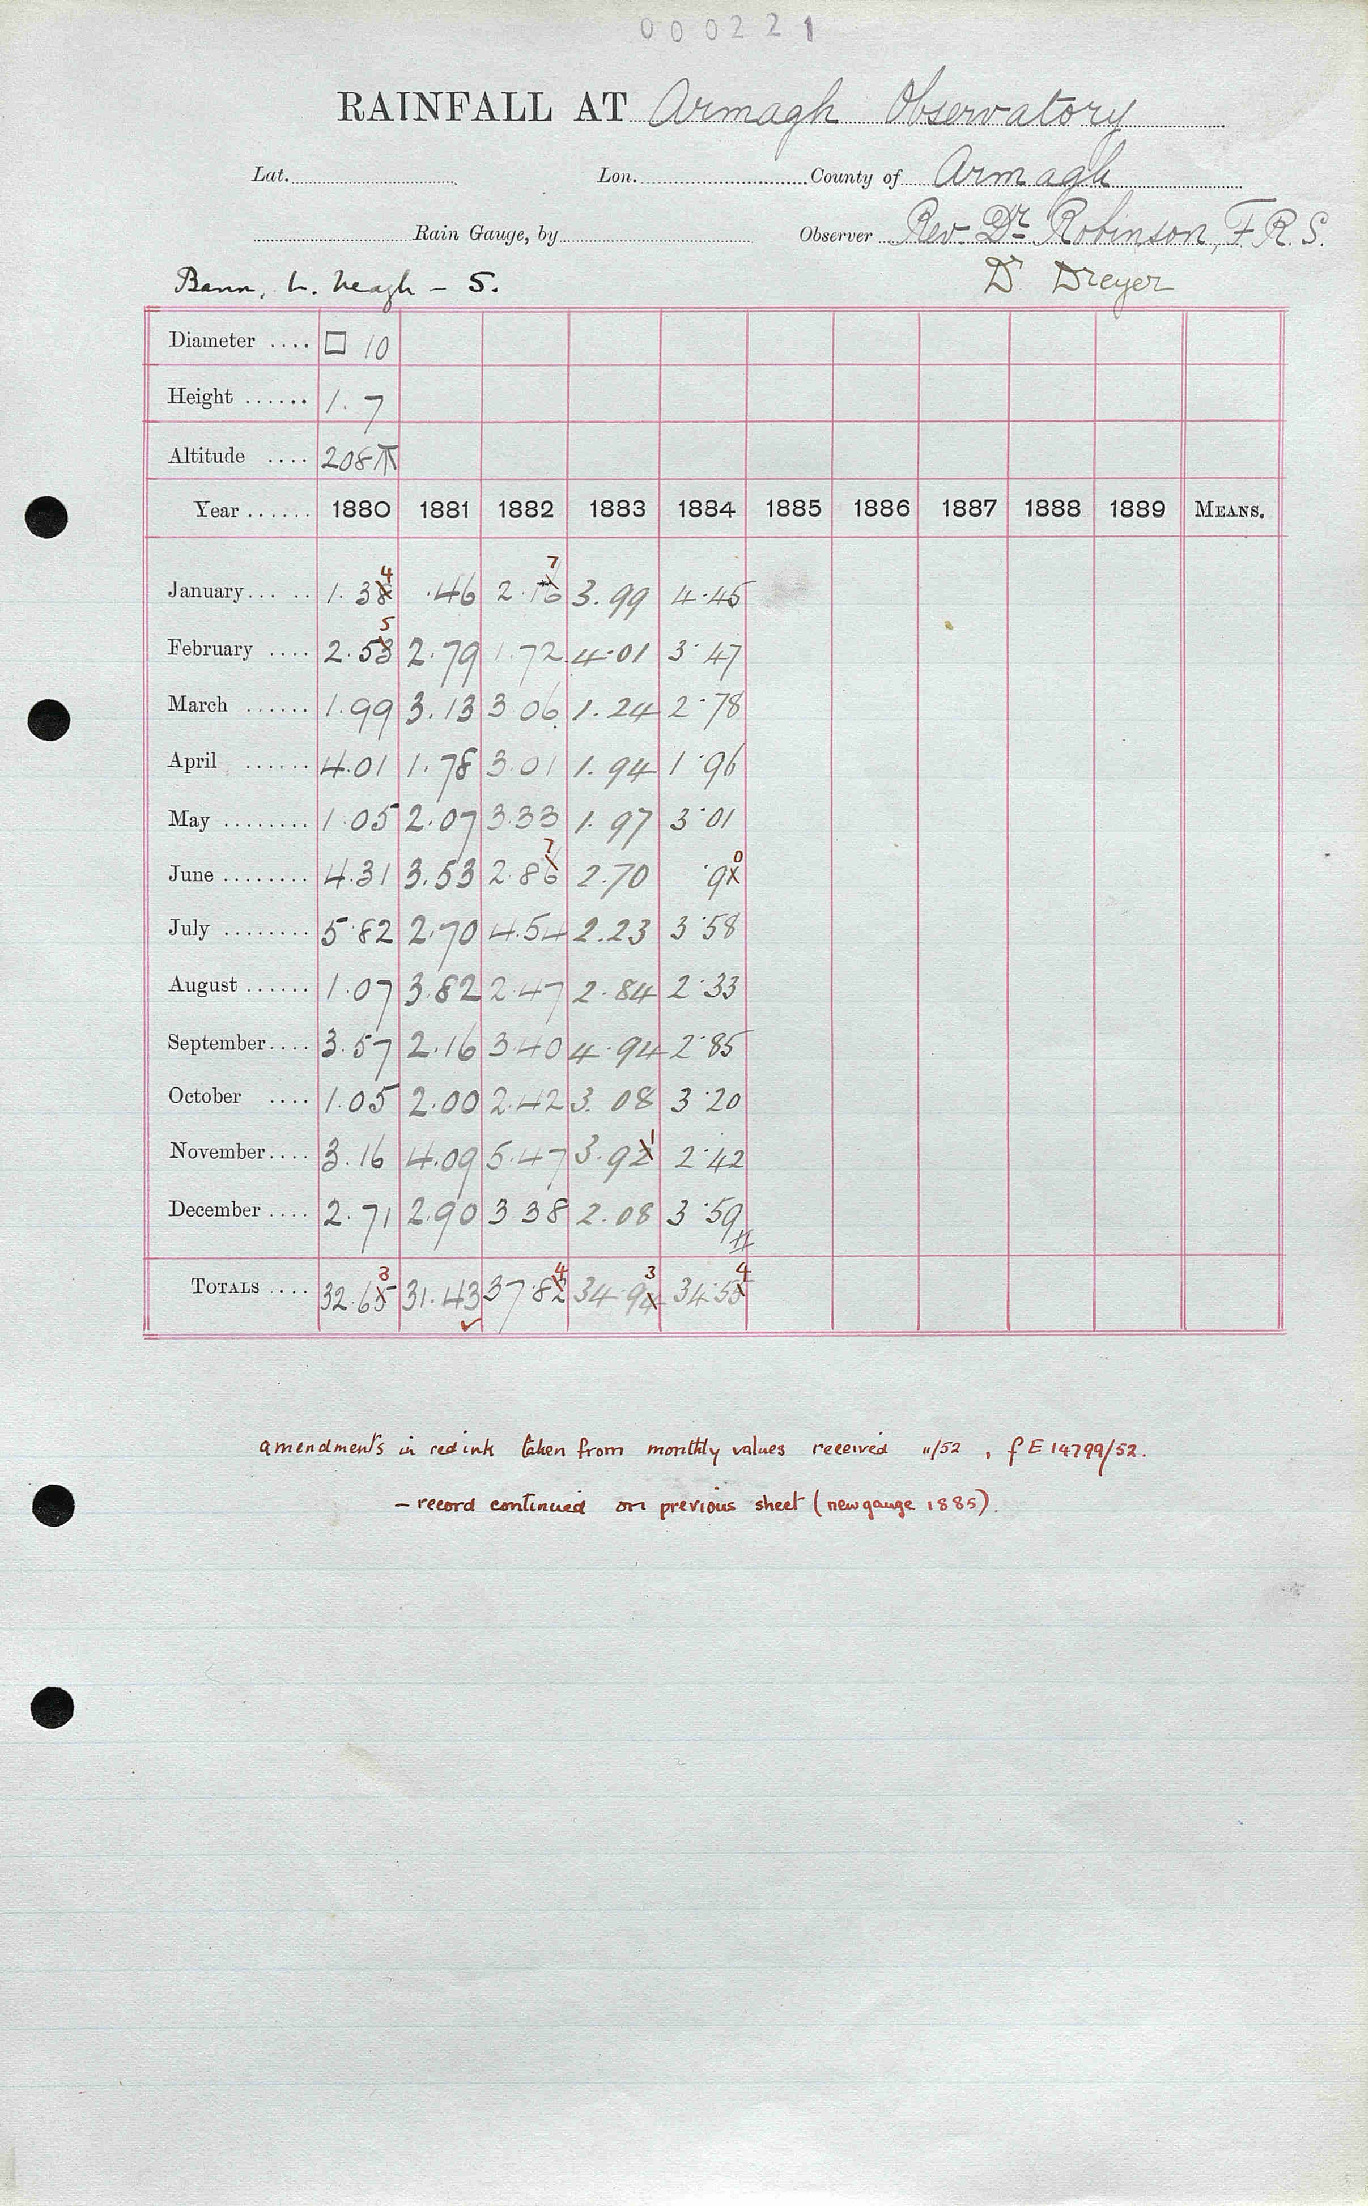 000221
RAINFALL AT Armagh Observatory
Lat. Lon. County of Armagh
Rain Gauge, by Observer Rev. Dr. Robinson, F.R.S.
Bann, L. Neagh - S. Dr Dreyer
Diameter .... □ 10
Height ...... 1.7
Altitude .... 208
Year ...... 1880 1881 1882 1883 1884 1885 1886 1887 1888 1889 MEANS.
4 7
January ..... 1.38 .46 2.16 3.99 4.45
5
February .... 2.53 2.79 1.72 4.01 3.47
March ...... 1.99 3.13 3.06 1.24 2.78
April ...... 4.01 1.78 3.01 1.94 1.96
May ........ 1.05 2.07 3.33 1.97 3.01
7 0
June ........ 4.31 3.53 2.86 2.70 .91
July ........ 5.82 2.70 4.54 2.23 3.58
August ...... 1.07 3.82 2.47 2.84 2.33
September .... 3.57 2.16 3.40 4.94 2.85
October .... 1.05 2.00 2.42 3.08 3.20
1
November .... 3.16 4.09 5.47 3.92 2.42
December .... 2.71 2.90 3.38 2.08 3.59
3 4 3 4
TOTALS .... 32.65 31.43 37.82 34.94 34.55
amendments in red ink taken from monthly values received 11/52, f E 14799/52.
- record continued on previous sheet (new gauge 1885).